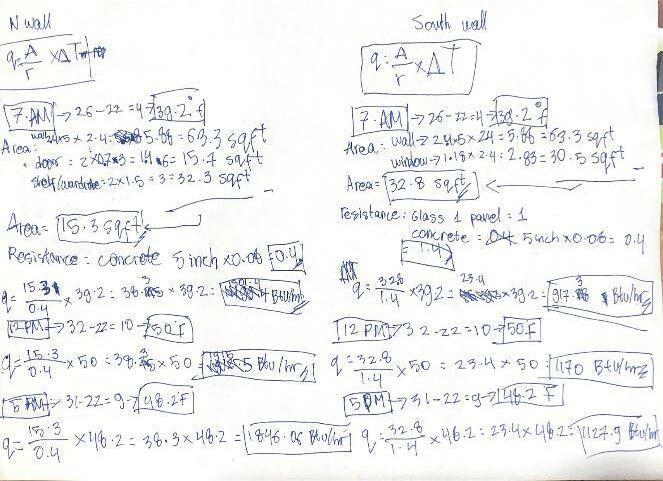 N wall
q= A/r × ΔT
7.AM → 26-22=4 → 39.2°f
Area: wall 2.45 × 2.4 = 5.88 = 63.3 sqft
door = 2×0.7×3 = 15.7 sqft
shelf/wardrobe = 2×1.5 = 3 = 32.3 sqft
Area= 15.3 sqft
Resistance = concrete 5inch×0.08 = 0.4
q= 15.3/0.4 × 39.2 = 38.3 × 39.2 = Btu/hr
12 PM → 32-22=10 → 50F
q= 15.3/0.4 × 50 = 38.3 × 50 = Btu/hr
5 PM → 31-22=9 → 48.2F
q= 15.3/0.4 × 48.2 = 38.3 × 48.2 = 1846.06 Btu/hr
South wall
q= A/r × ΔT
7.AM → 26-22=4 → 39.2°f
Area: wall → 2.45×2.4 = 5.88 = 63.3 sqft
window → 1.18×2.4 = 2.83 = 30.5 sqft
Area= 32.8 sqft
resistance: Glass 1 panel = 1
concrete = 5inch×0.08 = 0.4
= 1.4
q= 32.8/1.4 × 39.2 = 23.4 × 39.2 = 917.3 Btu/hr
12 PM → 32-22=10 → 50F
q= 32.8/1.4 × 50 = 23.4 × 50 = 1170 Btu/hr
5PM → 31-22=9 → 48.2 F
q= 32.8/1.4 × 48.2 = 23.4 × 48.2 = 1127.9 Btu/hr